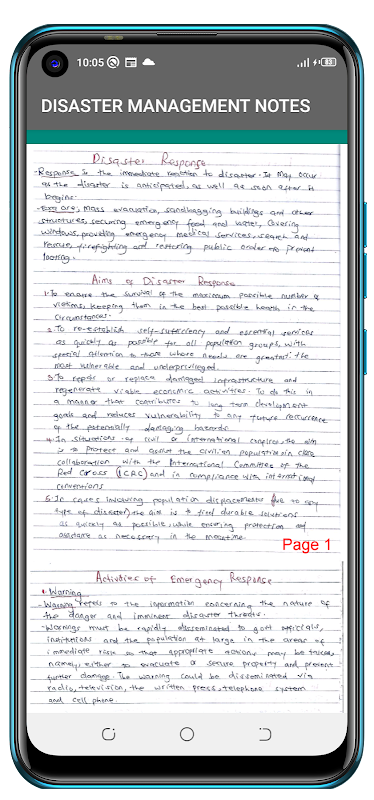 10:05
83
DISASTER MANAGEMENT NOTES
Disaster Response
-Response is the immediate reaction to disaster. It may occur
as the disaster is anticipated, as well as soon after it
begins.
-Exs are; Mass evacuation, sandbagging buildings and other
structures, securing emergency food and water, covering
windows, providing emergency medical services, search and
rescue, firefighting and restoring public order to prevent
looting.
Aims of Disaster Response
1. To ensure the survival of the maximum possible number of
victims, keeping them in the best possible health in the
circumstances.
2. To re-establish self-sufficiency and essential services
as quickly as possible for all population groups, with
special attention to those whose needs are greatest: the
most vulnerable and underprivileged.
3. To repair or replace damaged infrastructure and
regenerate viable economic activities. To do this in
a manner that contributes to long term development
goals and reduces vulnerability to any future recurrence
of the potentially damaging hazards
4. In situations of civil or international conflict, the aim
is to protect and assist the civilian population in close
collaboration with the International Committee of the
Red Cross (ICRC) and in compliance with international
conventions
5. In cases involving population displacements (due to any
type of disaster) the aim is to find durable solutions
as quickly as possible, while ensuring protection and
assistance as necessary in the meantime.
Page 1
Activities of Emergency Response
• Warning
- Warning refers to the information concerning the nature of
the danger and imminent disaster threats.
- Warnings must be rapidly disseminated to govt officials,
institutions and the population at large in the areas of
immediate risk so that appropriate actions may be taken,
namely, either to evacuate or secure property and prevent
further damage. The warning could be disseminated via
radio, television, the written press, telephone system
and cell phone.